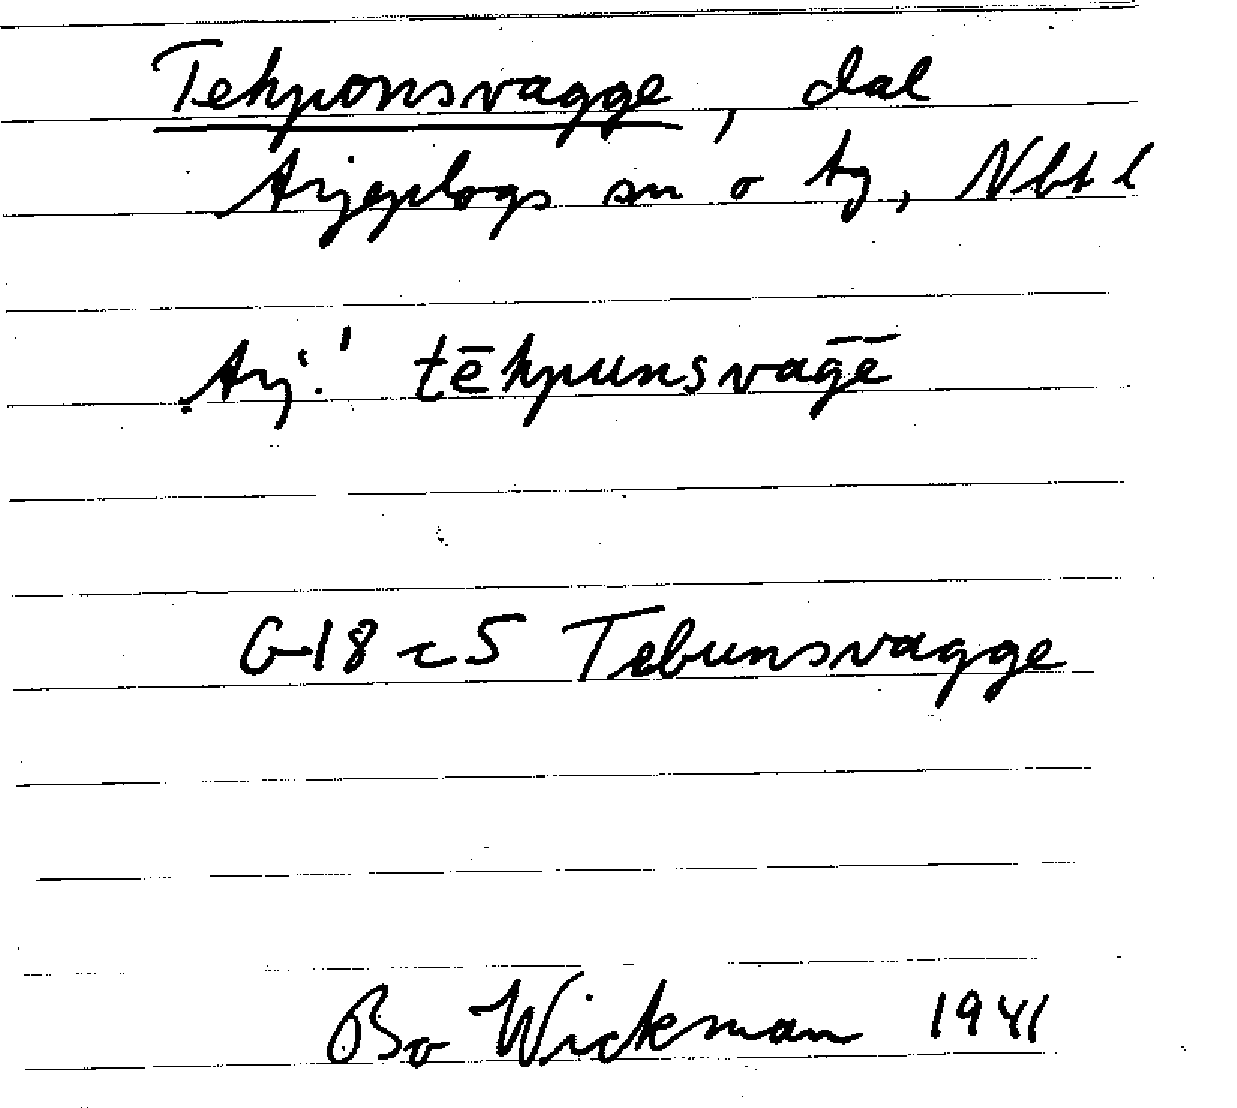 Tehponsvagge, dal
Arjeplogs sn o tg, Nbt l
Arj.! tēhpunsvāgē
G-18 c5 Tebunsvagge
Bo Wickman 1941